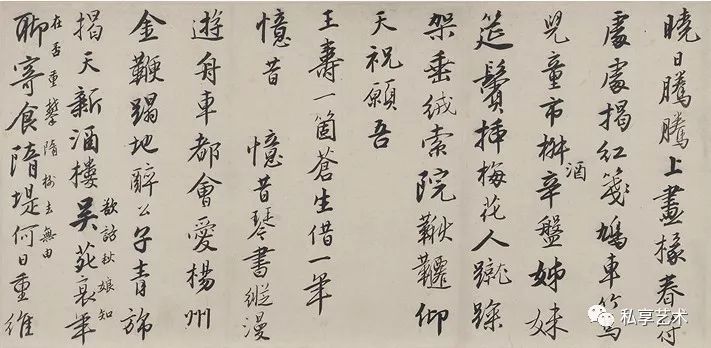 曉日騰騰上畫椽春符
處處揭紅箋鳩車竹馬
兒童市椒酒辛盤姊妹
筵鬢插梅花人蹴踘
架垂絨索院鞦韆仰
天祝願吾
王壽一箇蒼生借一年
憶昔 憶昔琴書縱漫
遊舟車都會愛楊州
金鞭蹋地醉公子青旆
欲話秋娘知
揭天新酒樓吳苑哀筝
在否重攀隋樹去無由
聊寄食隋堤何日重維
私享艺术